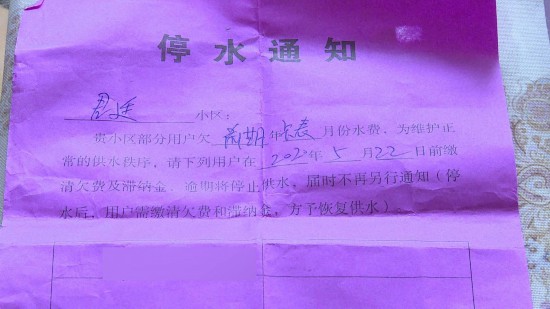 停水通知
小区：
贵小区部分用户欠 前期 年 卡表 月份水费，为维护正
常的供水秩序，请下列用户在 2020年 5 月 22 日前缴
清欠费及滞纳金，逾期将停止供水，届时不再另行通知（停
水后，用户需缴清欠费和滞纳金，方予恢复供水）